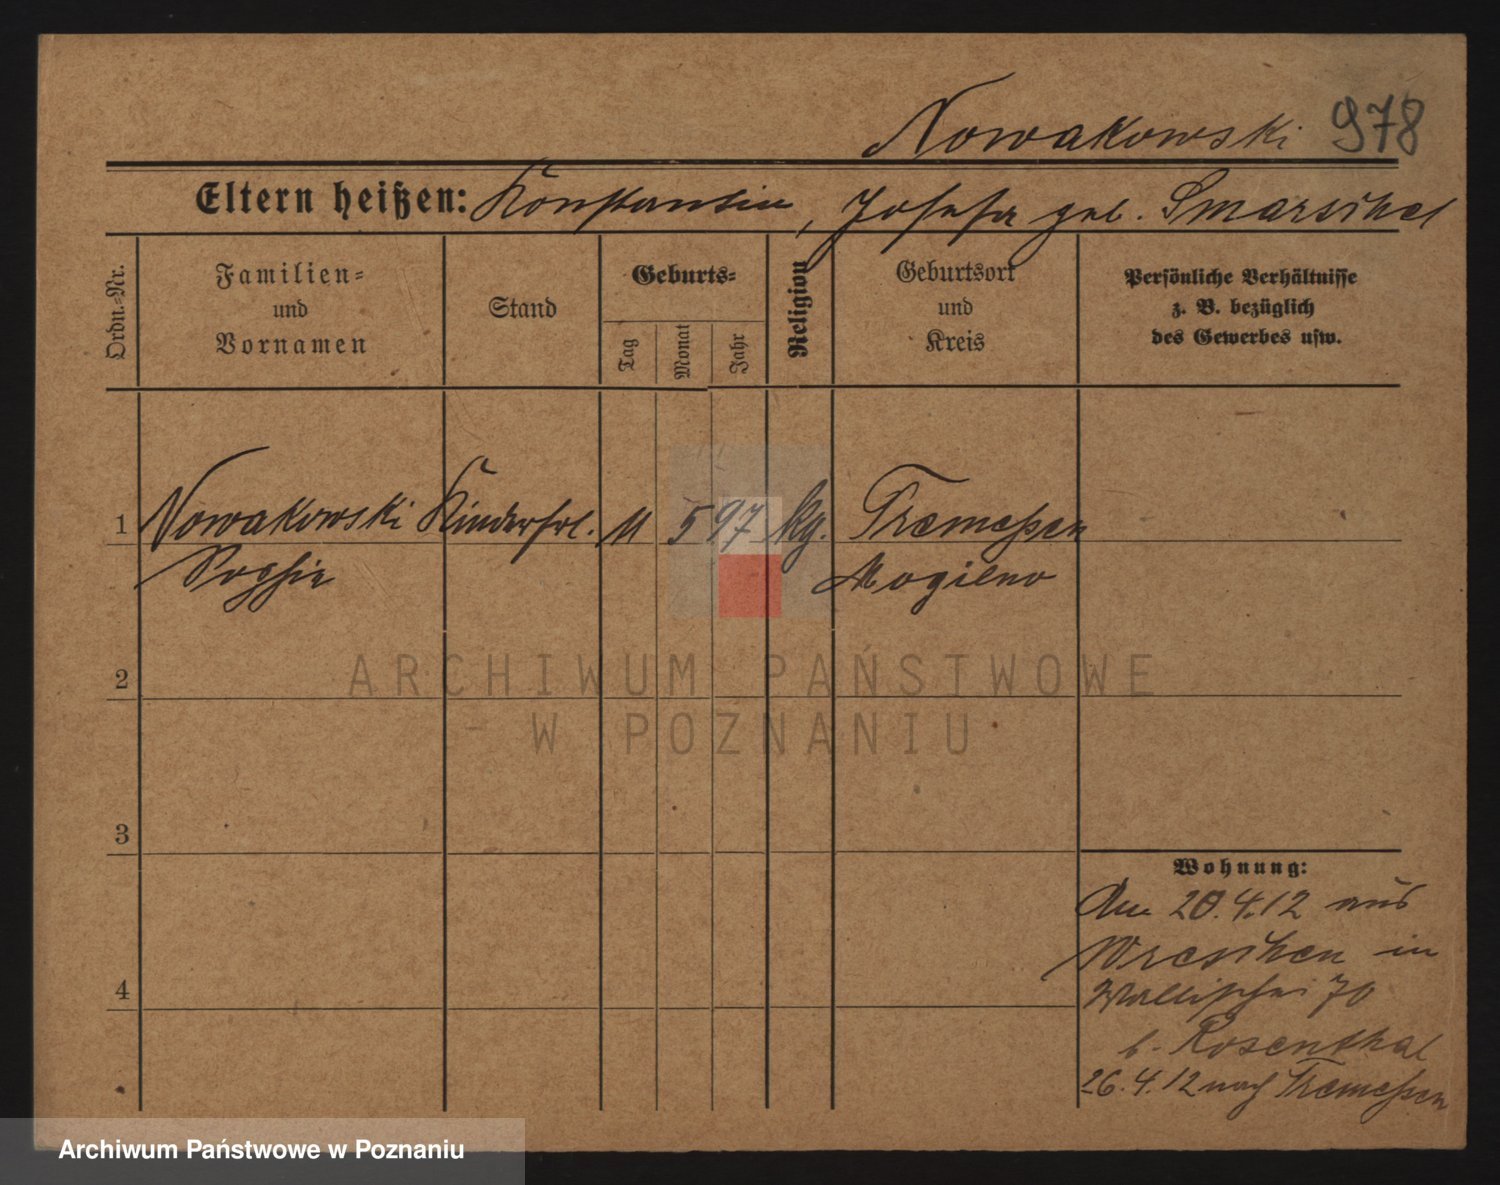 Nowakowski 978
Eltern heißen: Konstantin, Josefa geb.
Ordn.-Nr.
Familien-
und
Vornamen
Stand
Geburts-
Tag
Monat
Jahr
Religion
Geburtsort
und
Kreis
Persönliche Verhältnisse
z. B. bezüglich
des Gewerbes usw.
1 Nowakowski Kinderfrl. 11 5 97 kg. Tremessen
Sophie Mogilno
2
ARCHIWUM PAŃSTWOWE
W POZNANIU
3
Wohnung:
Am 20.4.12 aus
Wreschen in
4
Wallischei 70
b. Rosenthal
26.4.12 nach Tremessen
Archiwum Państwowe w Poznaniu